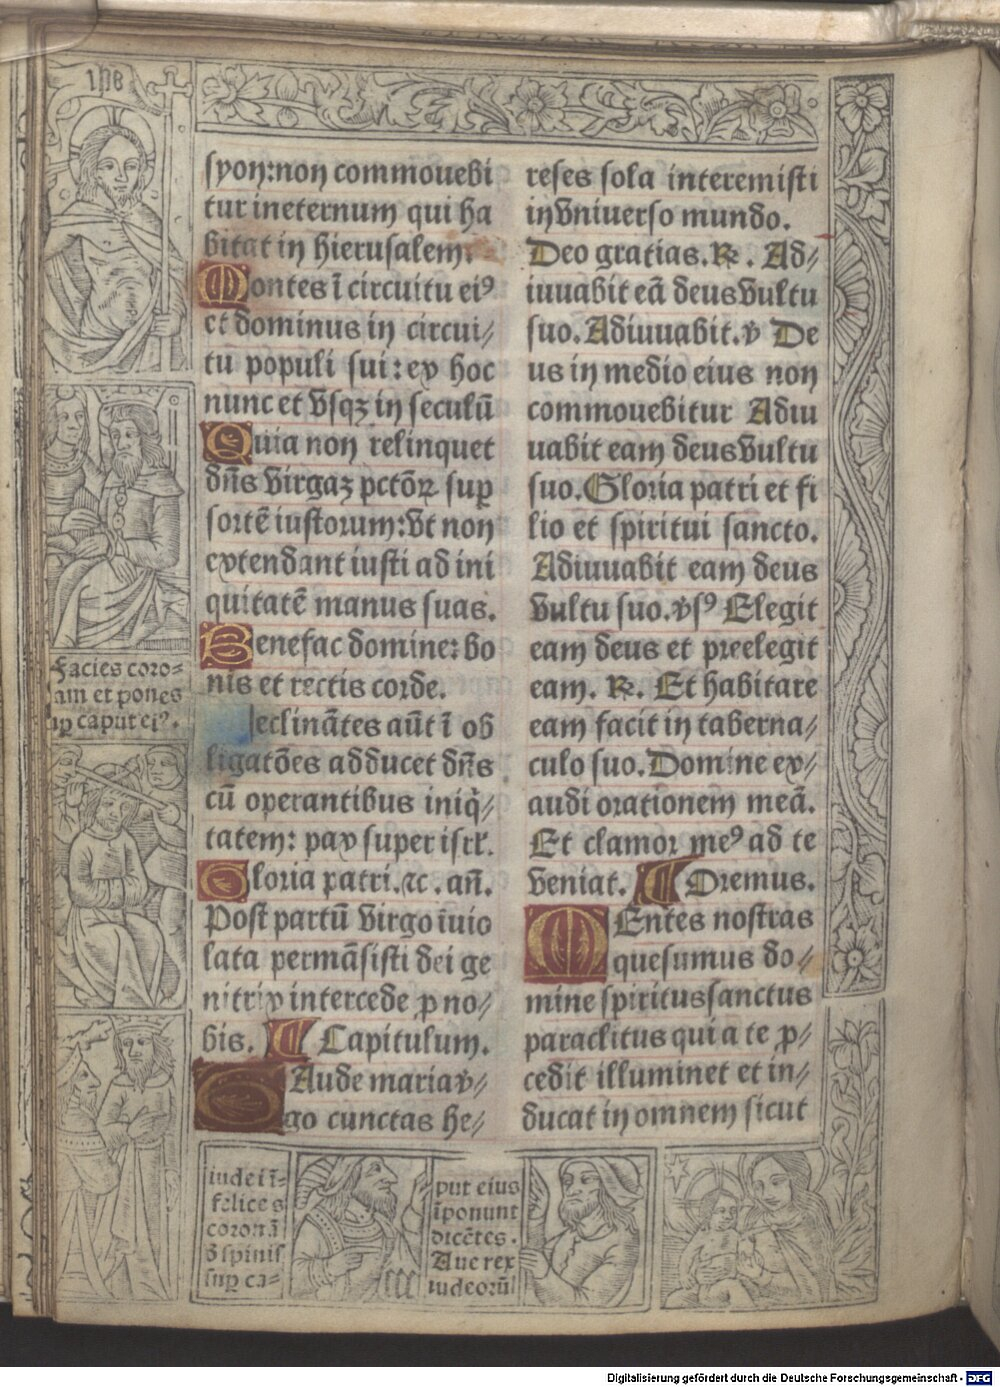 ihs
syon: non commouebi
tur ineternum qui ha
bitat in hierusalem.
Montes ī circuitu eiꝰ
et dominus in circui⸗
tu populi sui: ex hoc
nunc et vsqꝫ in seculū
Quia non relinquet
dn̄s virgaꝫ pctōꝝ suꝑ
sortē iustorum: vt non
extendant iusti ad ini
quitatē manus suas.
Benefac domine: bo
nis et rectis corde.
eclinātes aūt ī ob
ligatōes adducet dn̄s
cū operantibus iniq̄⸗
tatem: pax super isrl̄.
Gloria patri. ꝛc. an̄.
Post partū virgo īuio
lata permāsisti dei ge
nitrix intercede ꝓ no⸗
bis. ¶ Capitulum.
Gaude maria v̄⸗
go cunctas he⸗
reses sola interemisti
in vniuerso mundo.
Deo gratias. ℟. Ad⸗
iuuabit eā deus vultu
suo. Adiuuabit. ℣ De
us in medio eius non
commouebitur Adiu
uabit eam deus vultu
suo. Gloria patri et fi
lio et spiritui sancto.
Adiuuabit eam deus
vultu suo. ℣sꝰ Elegit
eam deus et preelegit
eam. ℟. Et habitare
eam facit in taberna⸗
culo suo. Domine ex⸗
audi orationem meā.
Et clamor meꝰ ad te
veniat. ¶ Oremus.
MEntes nostras
quesumus do⸗
mine spiritus sanctus
paraclitus qui a te ꝓ⸗
cedit illuminet et in⸗
ducat in omnem sicut
Facies coro⸗
am et pones
uꝑ caput eiꝰ.
iudei ī⸗
felices
coronā
d̄ spinis
suꝑ ca⸗
put eius
īponunt
dicētes.
Aue rex
iudeorū
Digitalisierung gefördert durch die Deutsche Forschungsgemeinschaft - DFG